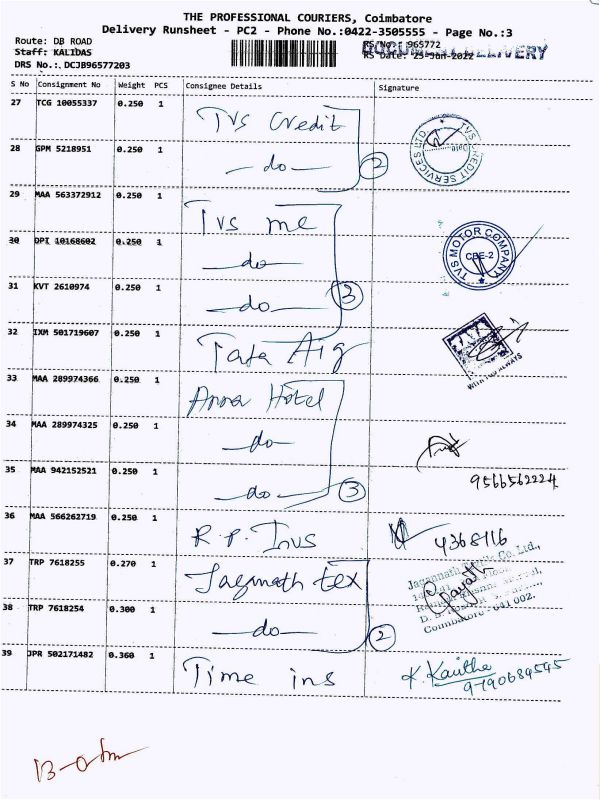 THE PROFESSIONAL COURIERS, Coimbatore
Delivery Runsheet - PC2 - Phone No.:0422-3505555 - Page No.:3
Route: DB ROAD
RS No.: 965772
DOCUMENT DELIVERY
Staff: KALIDAS
RS Date: 25-Jan-2022
DRS No.: DCJB96577203
S No Consignment No Weight PCS Consignee Details Signature
27 TCG 10055337 0.250 1 Tvs Credit
28 GPM 5218951 0.250 1 —do— 2
TVS CREDIT SERVICES LTD
29 MAA 563372912 0.250 1 Tvs me
30 DPI 10168602 0.250 1 —do—
TVS MOTOR COMPANY
CBE-2
31 KVT 2610974 0.250 1 —do— 3
32 IXM 501719607 0.250 1 Tata Aig
WITH YOU ALWAYS
33 MAA 289974366 0.250 1 Anna Hotel
34 MAA 289974325 0.250 1 —do—
35 MAA 942152521 0.250 1 —do— 3
9566562224
36 MAA 566262719 0.250 1 R.P. Invs
4368116
37 TRP 7618255 0.270 1 Jagannath tex
Jagannath Co. Ltd.,
38 TRP 7618254 0.300 1 —do— 2
Coimbatore - 641 002.
39 JPR 502171482 0.360 1 Time ins
K. Kavitha
9790689545